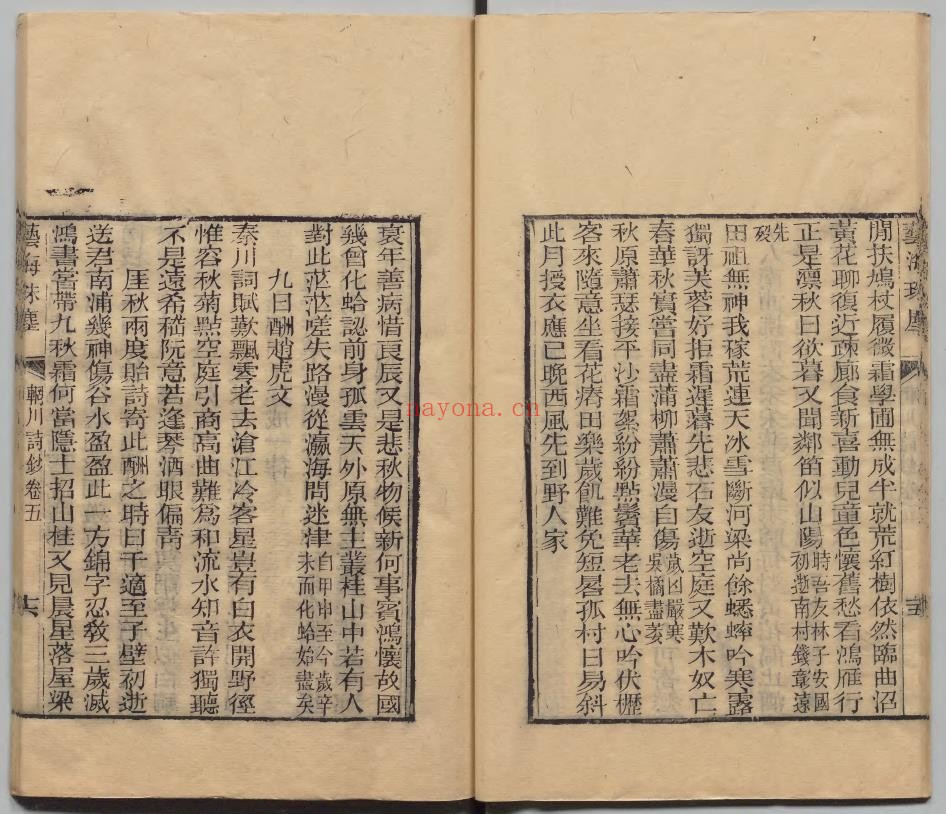 閒扶鳩杖履微霜學圃無成半就荒紅樹依然臨曲沼
黃花聊復近疎廊食新喜動兒童色懷舊愁看鴻雁行
正是凛秋日欲暮又聞鄰笛似山陽初逝南村錢章遠時吾友林子安國
先歿
田祖無神我稼荒連天冰雪斷河梁尚餘蟋蟀吟寒露
獨訝芙蓉好拒霜遲暮先悲石友逝空庭又歎木奴亡
春華秋實當同盡蒲柳蕭蕭漫自傷歲凶嚴寒吳橘盡萎
秋原蕭瑟接平沙霜絮紛紛點鬢華老去無心吟伏櫪
客來隨意坐看花瘠田樂歲飢難免短晷孤村日易斜
此月授衣應已晚西風先到野人家
藝海珠塵
哀年善病惜良辰又是悲秋物候新何事賓鴻懷故國
幾曾化蛤認前身孤雲天外原無主叢桂山中若有人
對此茫茫嗟失路漫從瀛海問迷津自甲申至今歲辛未而化蛤始盡矣
九日酬趙虎文
秦川詞賦歎飄零老去滄江冷客星豈有白衣開野徑
惟容秋菊點空庭引商高曲難為和流水知音許獨聽
不是遠希嵇阮意若逢琴酒眼偏青
厓秋兩度貽詩寄此酬之時日千適至子壁初逝
送君南浦幾神傷谷水盈盈此一方錦字忍教三歲滅
鴻書當帶九秋霜何當隱士招山桂又見晨星落屋梁
藝海珠塵
輞川詩鈔卷五
十六
nayona.cn